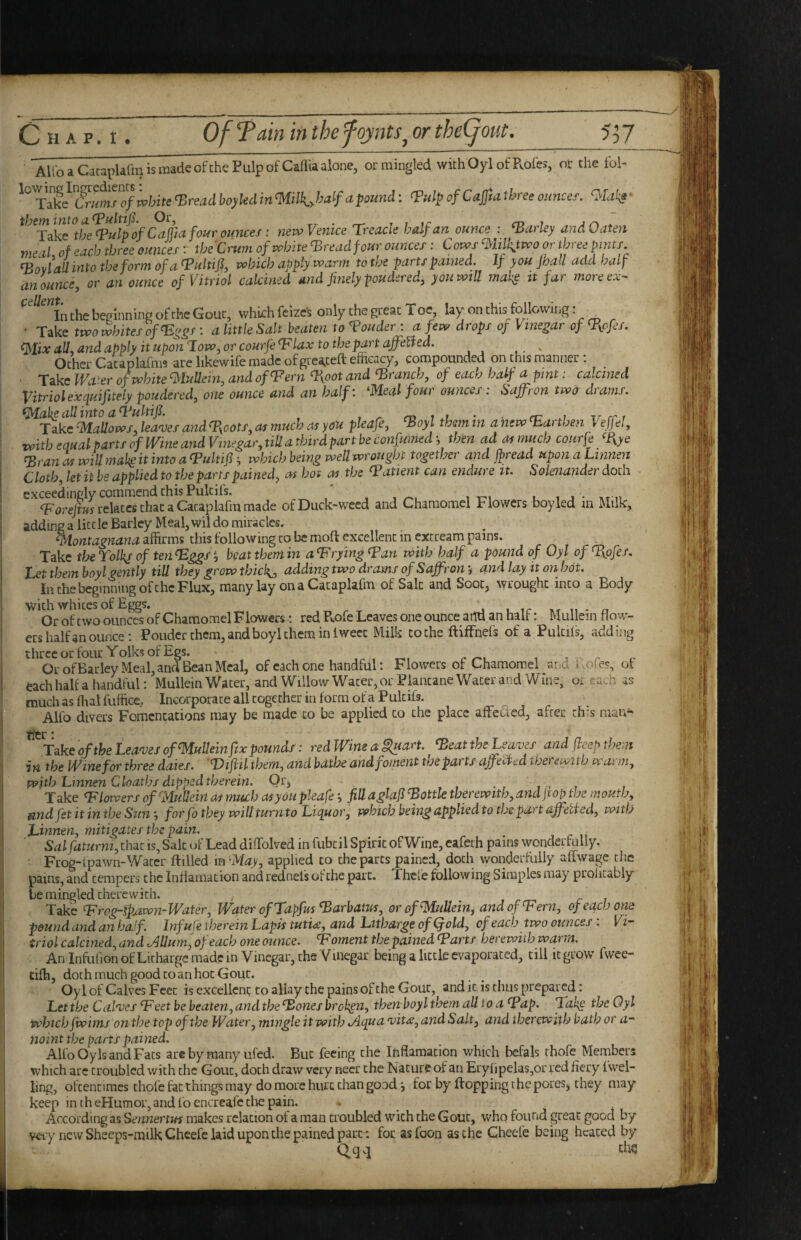 CHAP. I. Of Pain in the Joynts, or the Gout. 537
Also a Cataplasm is made of the Pulp of Cassia alone, or mingled with Oyl of Roses, or the fol-
lowing Ingredients:
Take Crums of white Bread boyled in Milk, half a pound: Pulp of Cassia three ounces. Make
them into a Pultiß. Or,
Take the Pulp of Cassia four ounces: new Venice Treacle half an ounce: Barley and Oaten
meal, of each three ounces: the Crum of white Bread four ounces: Cows Milk, two or three pints.
Boyl all into the form of a Pultiß, which apply warm to the parts pained. If you shall add half
an ounce, or an ounce of Vitriol calcined and finely poudered, you will make it far more ex-
cellent.
In the beginning of the Gout, which seizes only the great Toe, lay on this following:
Take two whites of Eggs: a little Salt beaten to Pouder: a few drops of Vinegar of Roses.
Mix all, and apply it upon Tow, or course Flax to the part affected.
Other Cataplasms are likewise made of greatest efficacy, compounded on this manner:
Take Water of white Mullein, and of Fern Root and Branch, of each half a pint: calcined
Vitriol exquisitely poudered, one ounce and an half: Meal four ounces: Saffron two drams.
Make all into a Pultiß.
Take Mallows, leaves and Roots, as much as you please, Boyl them in a new Earthen Vessel,
with equal parts of Wine and Vinegar, till a third part be consumed; then ad as much course Rye
Bran as will make it into a Pultiß; which being well wrought together and spread upon a Linnen
Cloth, let it be applied to the parts pained, as hot as the Patient can endure it. Solenander doth
exceedingly commend this Pultiſs.
Forestus relates that a Cataplasm made of Duck-weed and Chamomel Flowers boyled in Milk,
adding a little Barley Meal, wil do miracles.
Montagnana affirms this following to be most excellent in extream pains.
Take the Yolks of ten Eggs; beat them in a Frying Pan with half a pound of Oyl of Roses.
Let them boyl gently till they grow thick, adding two drams of Saffron; and lay it on hot.
In the beginning of the Flux, many lay on a Cataplasm of Salt and Soot, wrought into a Body
with whites of Eggs.
Or of two ounces of Chamomel Flowers: red Rose Leaves one ounce and an half: Mullein flow-
ers half an ounce: Pouder them, and boyl them in sweet Milk to the stiffness of a Pultiſs, adding
three or four Yolks of Egs.
Or of Barley Meal, and Bean Meal, of each one handful: Flowers of Chamomel and Roses, of
each half a handful: Mullein Water, and Willow Water, or Plantane Water and Wine, of each as
much as shal suffice. Incorporate all together in form of a Pultiſs.
Also divers Fomentations may be made to be applied to the place affected, after this man-
ner:
Take of the Leaves of Mullein six pounds: red Wine a Quart. Beat the Leaves and steep them
in the Wine for three daies. Distil them, and bathe and foment the parts affected therewith warm,
with Linnen Cloaths dipped therein. Or,
Take Flowers of Mullein as much as you please; fill a glaß Bottle therewith, and stop the mouth,
and set it in the Sun; for so they will turn to Liquor, which being applied to the part affected, with
Linnen, mitigates the pain.
Sal saturni, that is, Salt of Lead dissolved in subtil Spirit of Wine, easeth pains wonderfully.
Frog-spawn-Water stilled in May, applied to the parts pained, doth wonderfully asswage the
pains, and tempers the Inflamation and redness of the part. These following Simples may profitably
be mingled therewith.
Take Frog-spawn-Water, Water of Tapsus Barbatus, or of Mullein, and of Fern, of each one
pound and an half. Infuse therein Lapis tutiæ, and Litharge of Gold, of each two ounces: Vi-
triol calcined, and Allum, of each one ounce. Foment the pained Parts herewith warm.
An Infusion of Litharge made in Vinegar, the Vinegar being a little evaporated, till it grow swee-
tish, doth much good to an hot Gout.
Oyl of Calves Feet is excellent to allay the pains of the Gout, and it is thus prepared:
Let the Calves Feet be beaten, and the Bones broken, then boyl them all to a Pap. Take the Oyl
which swims on the top of the Water, mingle it with Aqua vitæ, and Salt, and therewith bath or a-
noint the parts pained.
Also Oyls and Fats are by many used. But seeing the Inflamation which befals those Members
which are troubled with the Gout, doth draw very neer the Nature of an Erysipelas, or red fiery swel-
ling, oftentimes those fat things may do more hurt than good; for by stopping the pores, they may
keep in the Humor, and so encrease the pain.
According as Sennertus makes relation of a man troubled with the Gout, who found great good by
very new Sheeps-milk Cheese laid upon the pained part: for as soon as the Cheese being heated by
Qqq the